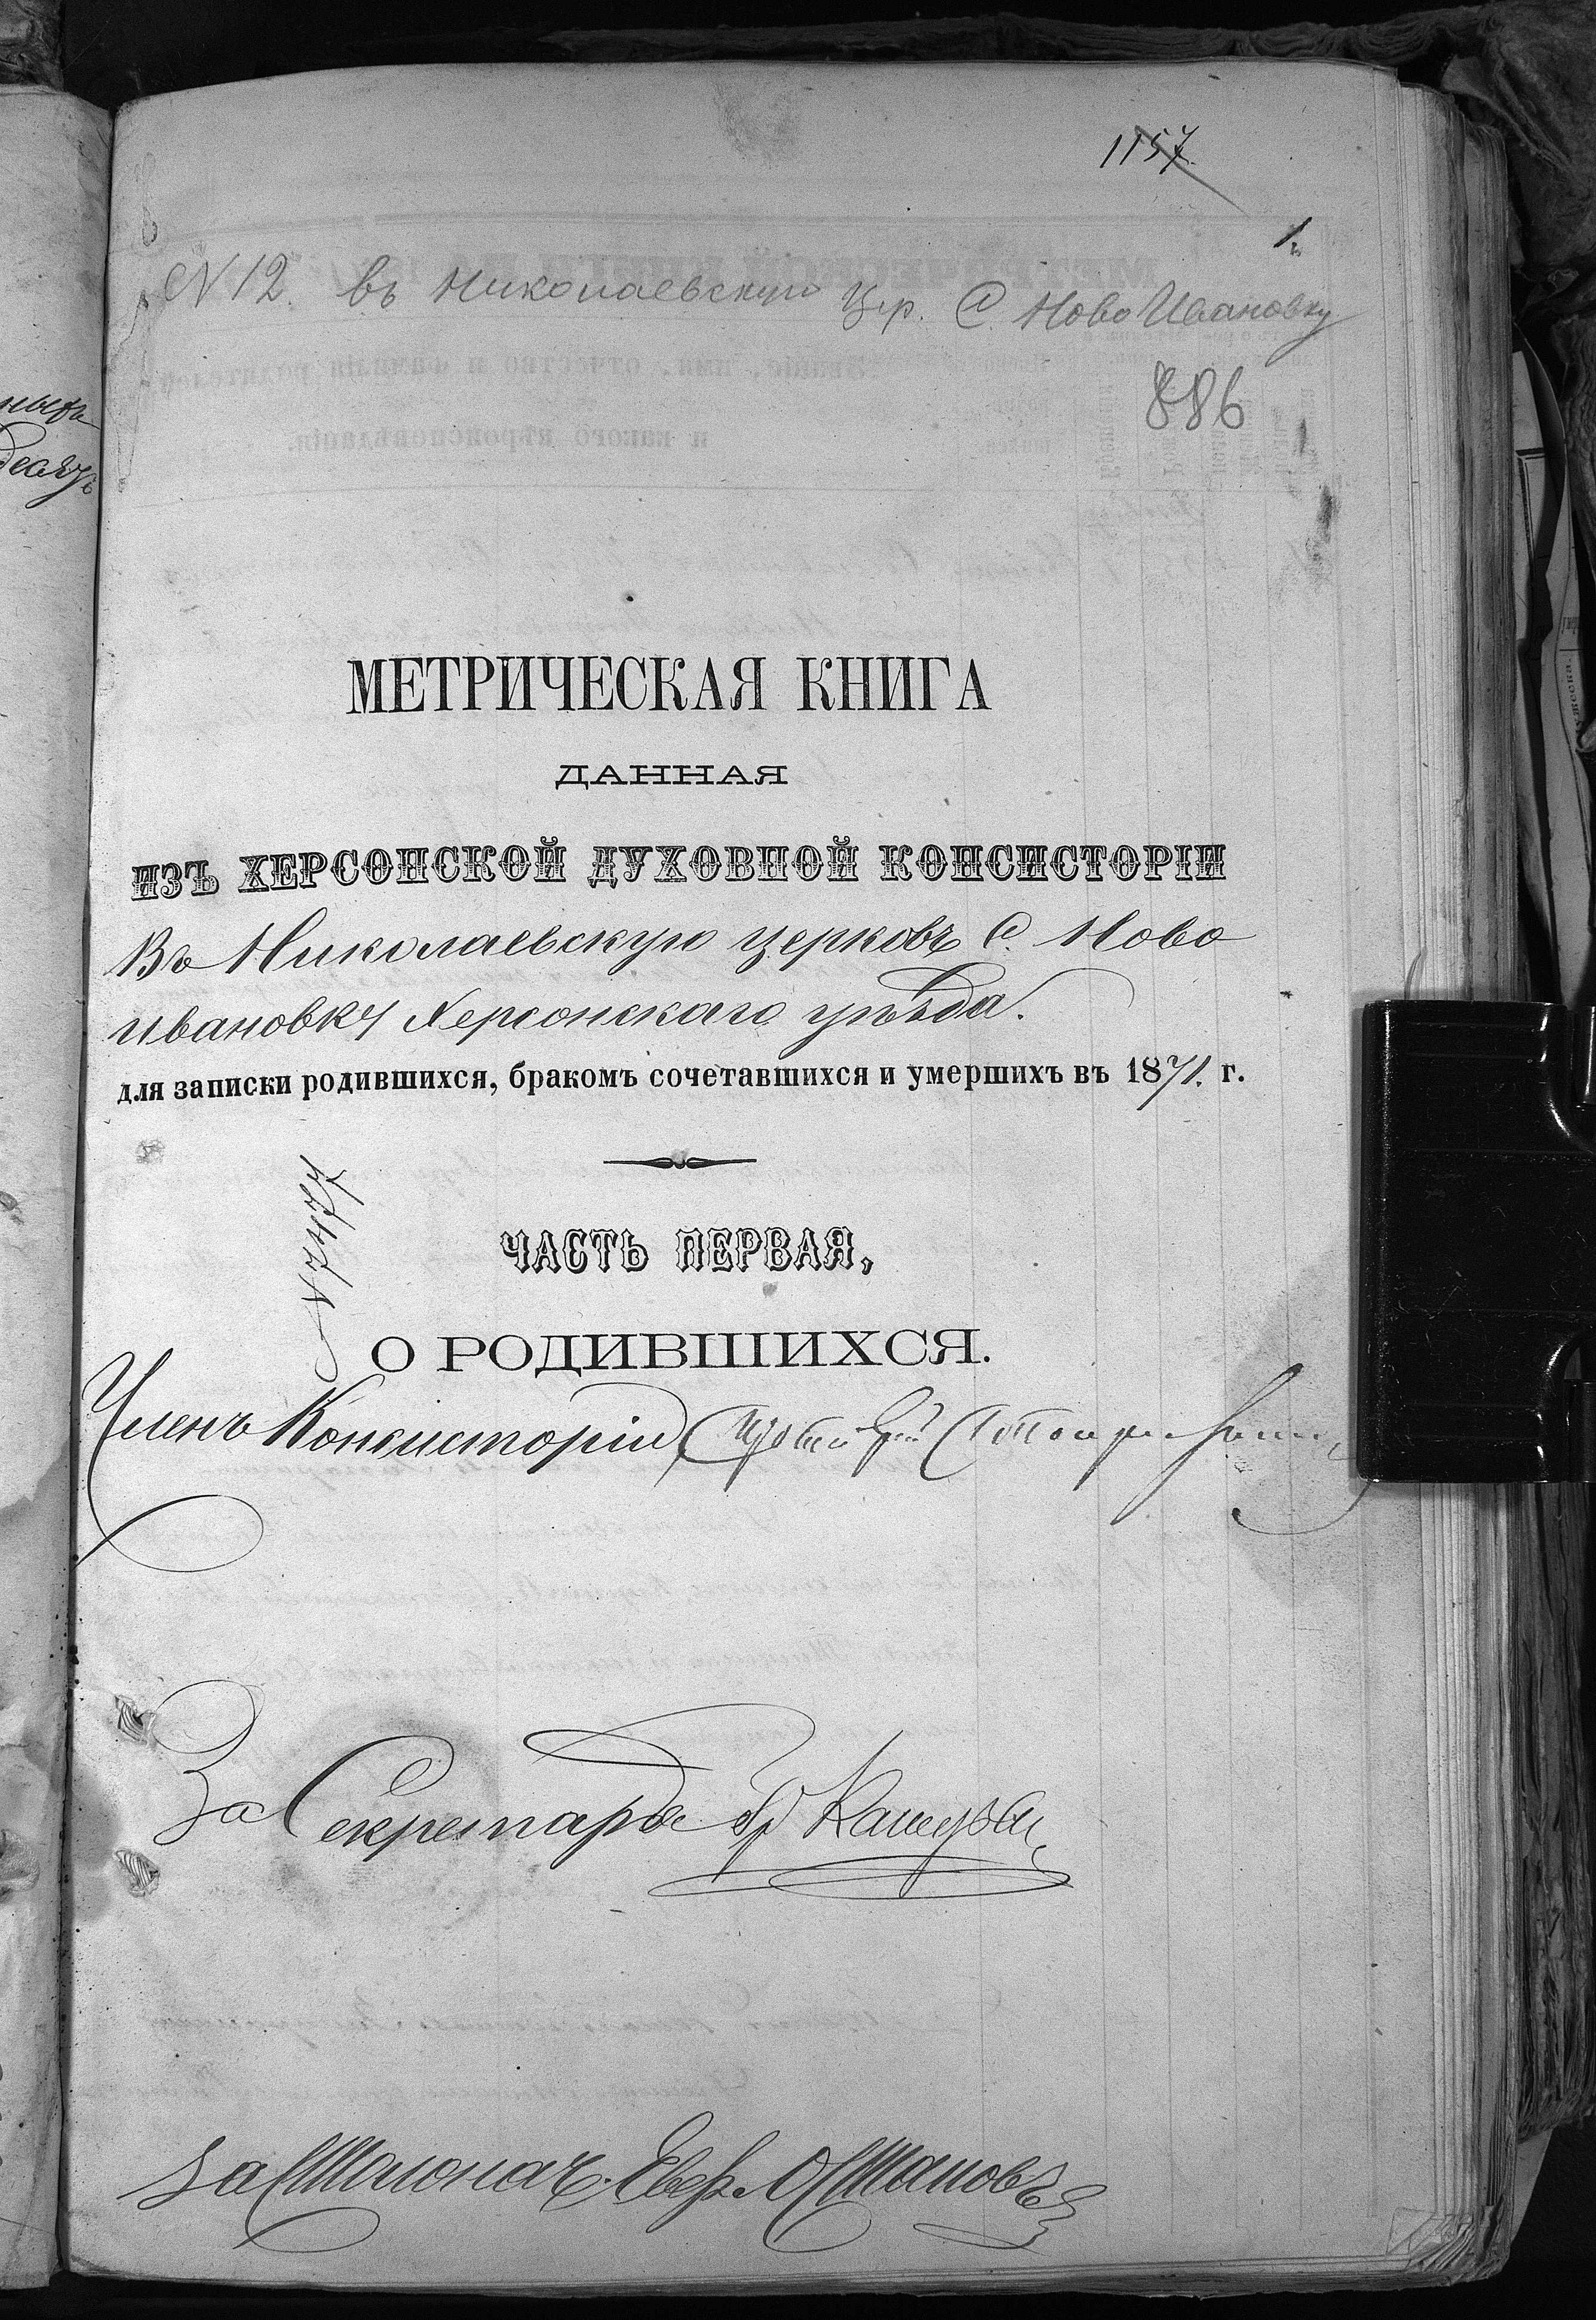 1157
1.
N 12. въ Николаевскую Цер. С. Ново Ивановку
886
МЕТРИЧЕСКАЯ КНИГА
ДАННАЯ
ИЗЪ ХЕРСОНСКОЙ ДУХОВНОЙ КОНСИСТОРІИ
Въ Николаевскую церковь С. Ново
ивановку Херсонскаго уѣзда.
для записки родившихся, бракомъ сочетавшихся и умершихъ въ 1871. г.
N 7477
ЧАСТЬ ПЕРВАЯ,
О РОДИВШИХСЯ.
Членъ Консисторіи
За Секретаря
За Столонач.